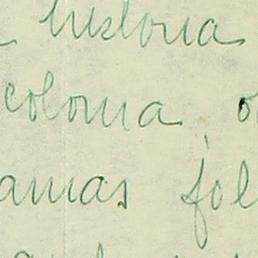 historia
colonia, o
amas fol